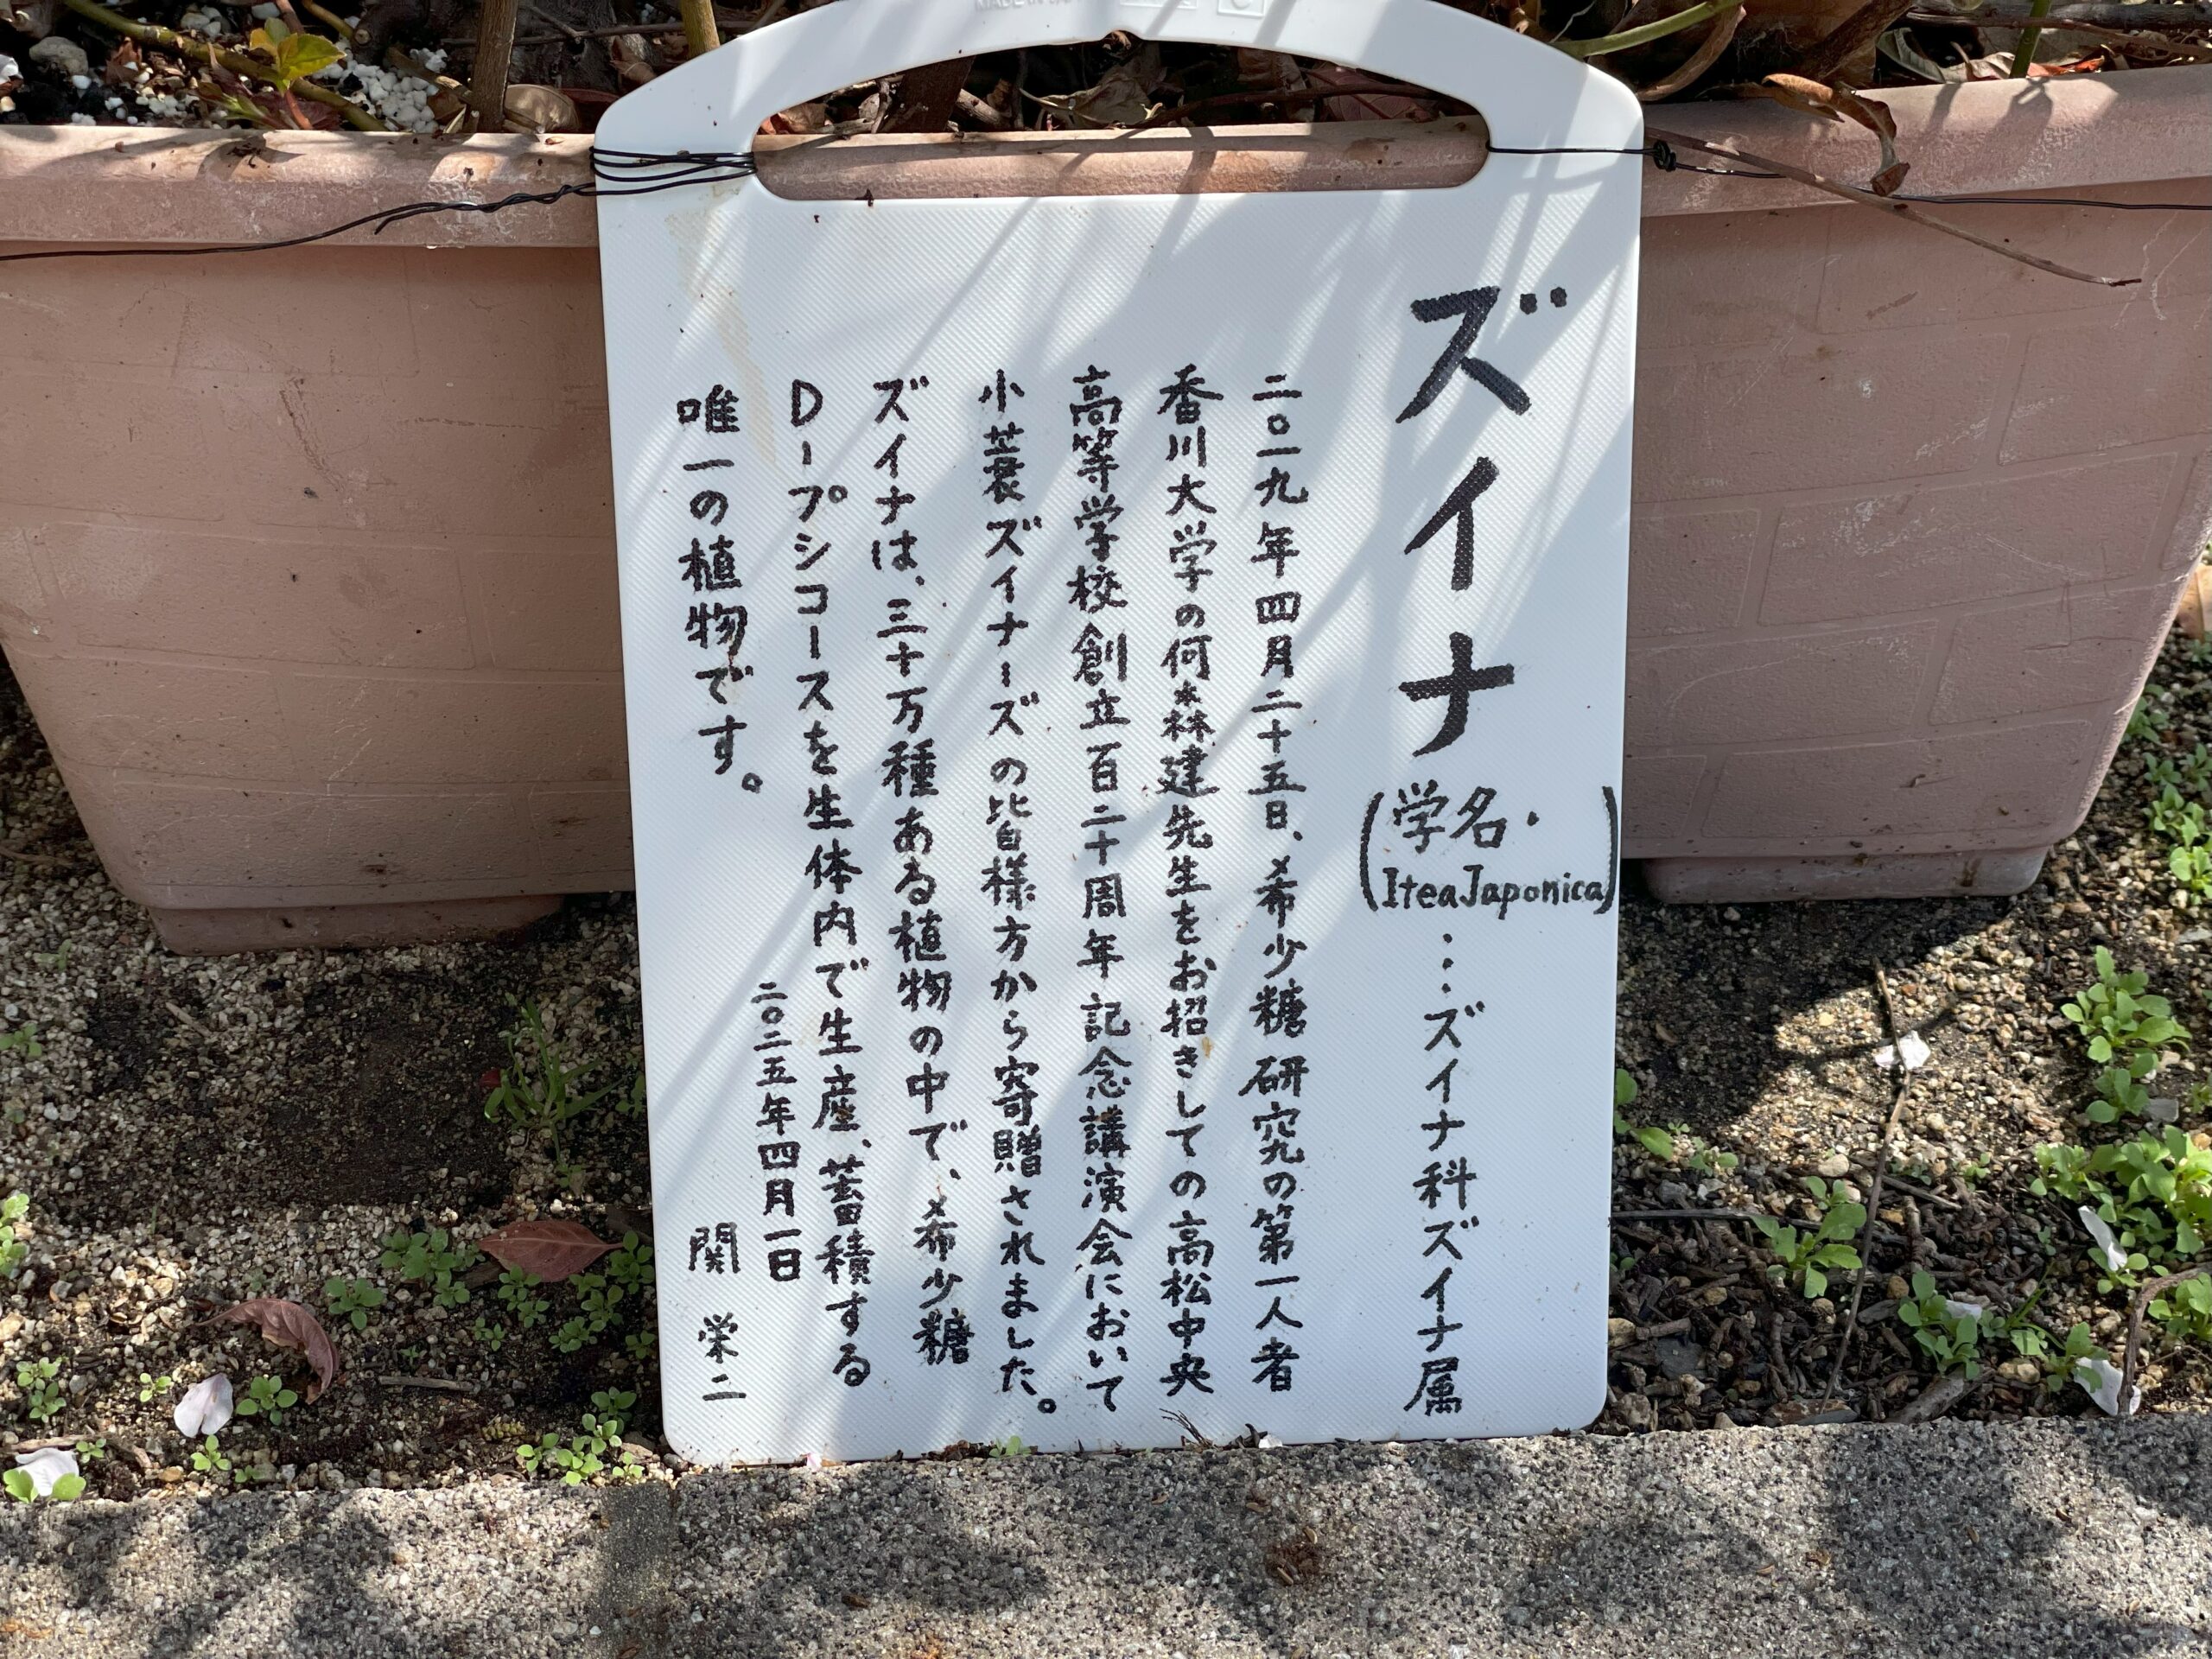 ズイナ(学名・IteaJaponica)…ズイナ科ズイナ属
二〇一九年四月二十五日、希少糖研究の第一人者
香川大学の何森建先生をお招きしての高松中央
高等学校創立百二十周年記念講演会において
小蓑ズイナーズの皆様方から寄贈されました。
ズイナは、三十万種ある植物の中で、希少糖
D-プシコースを生体内で生産、蓄積する
唯一の植物です。
二〇二五年四月一日
関 栄二